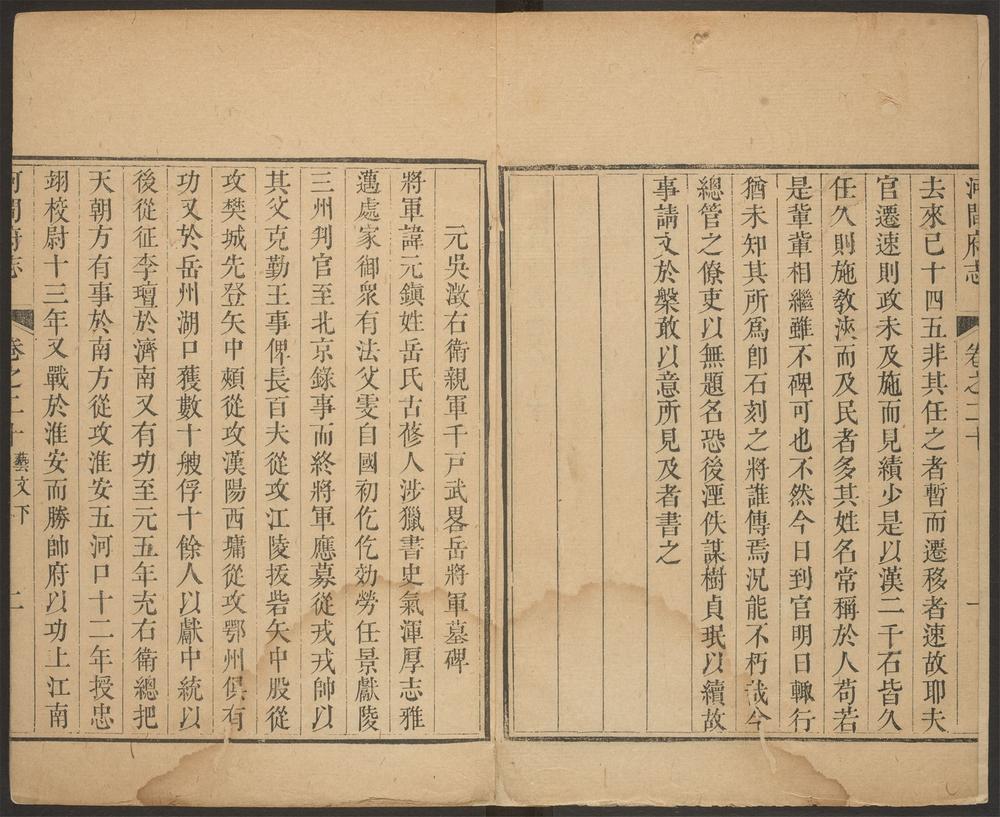 河間府志 卷之二十 一
去來已十四五非其任之者暫而遷移者速故耶夫
官遷速則政未及施而見績少是以漢二千石皆久
任久則施敎浹而及民者多其姓名常稱於人苟若
是軰軰相繼雖不碑可也不然今日到官明日輙行
猶未知其所爲卽石刻之將誰傳焉況能不朽哉今
總管之僚吏以無題名恐後湮佚謀樹貞珉以續故
事請文於槃敢以意所見及者書之
元吳澂右衛親軍千戸武畧岳將軍墓碑
將軍諱元鎭姓岳氏古修人涉獵書史氣渾厚志雅
邁處家御衆有法父雯自國初仡仡効勞任景獻陵
三州判官至北京錄事而終將軍應募從戎戎帥以
其父克勤王事俾長百夫從攻江陵拔砦矢中股從
攻樊城先登矢中頰從攻漢陽西墉從攻鄂州俱有
功又於岳州湖口獲數十艘俘十餘人以獻中統以
後從征李璮於濟南又有功至元五年充右衛總把
天朝方有事於南方從攻淮安五河口十二年授忠
翊校尉十三年又戰於淮安而勝帥府以功上江南
河間府志 卷之二十 藝文下 二